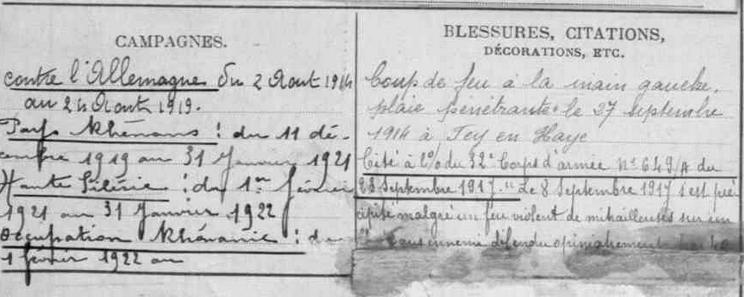 CAMPAGNES.
contre l'Allemagne du 2 Août 1914
au 24 Août 1919.
Pays Rhénans : du 11 dé-
cembre 1919 au 31 Janvier 1921
Haute Silésie : du 1er février
1921 au 31 Janvier 1922
Occupation Rhénanie : du
1 février 1922 au
BLESSURES, CITATIONS,
DÉCORATIONS, ETC.
Coup de feu à la main gauche,
plaie pénétrante le 27 septembre
1914 à Fey en Haye
Cité à l'O/ du 32e Corps d'armée N° 649/A du
28 Septembre 1917 " Le 8 Septembre 1917 s'est pré
cipité malgré un feu violent de mitrailleuses sur un
ennemie défendu opiniâtrement